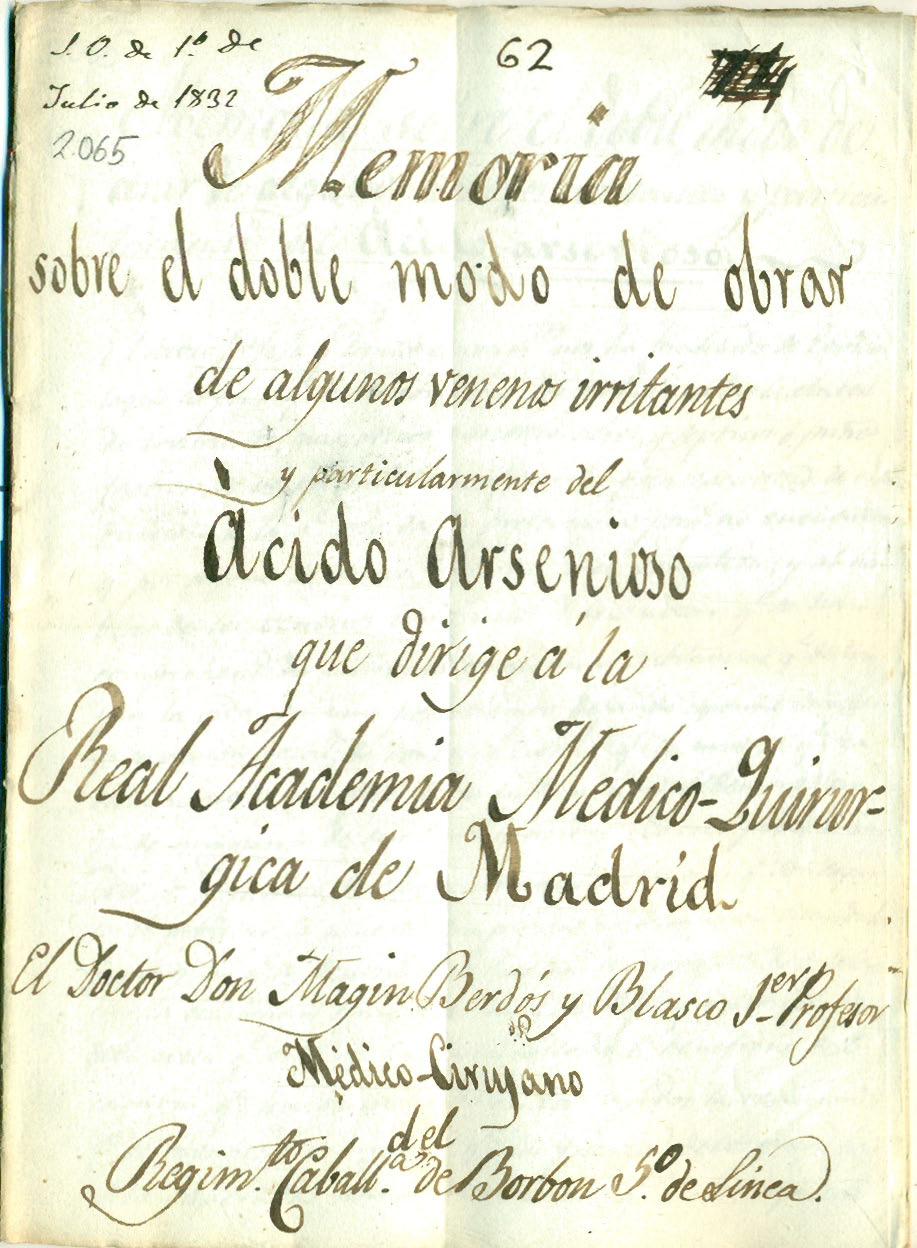 S. O. de 1º de
Julio de 1832
2.065
62
Memoria
sobre el doble modo de obrar
de algunos venenos irritantes
y particularmente del
Àcido Arsenioso
que dirige á la
Real Academia Medico-Quirur-
gica de Madrid.
El Doctor Don Magin Berdós y Blasco 1.er Profesor
Médico-Cirujano
del
Regim.to Caball.a de Borbon 5º. de Linea.